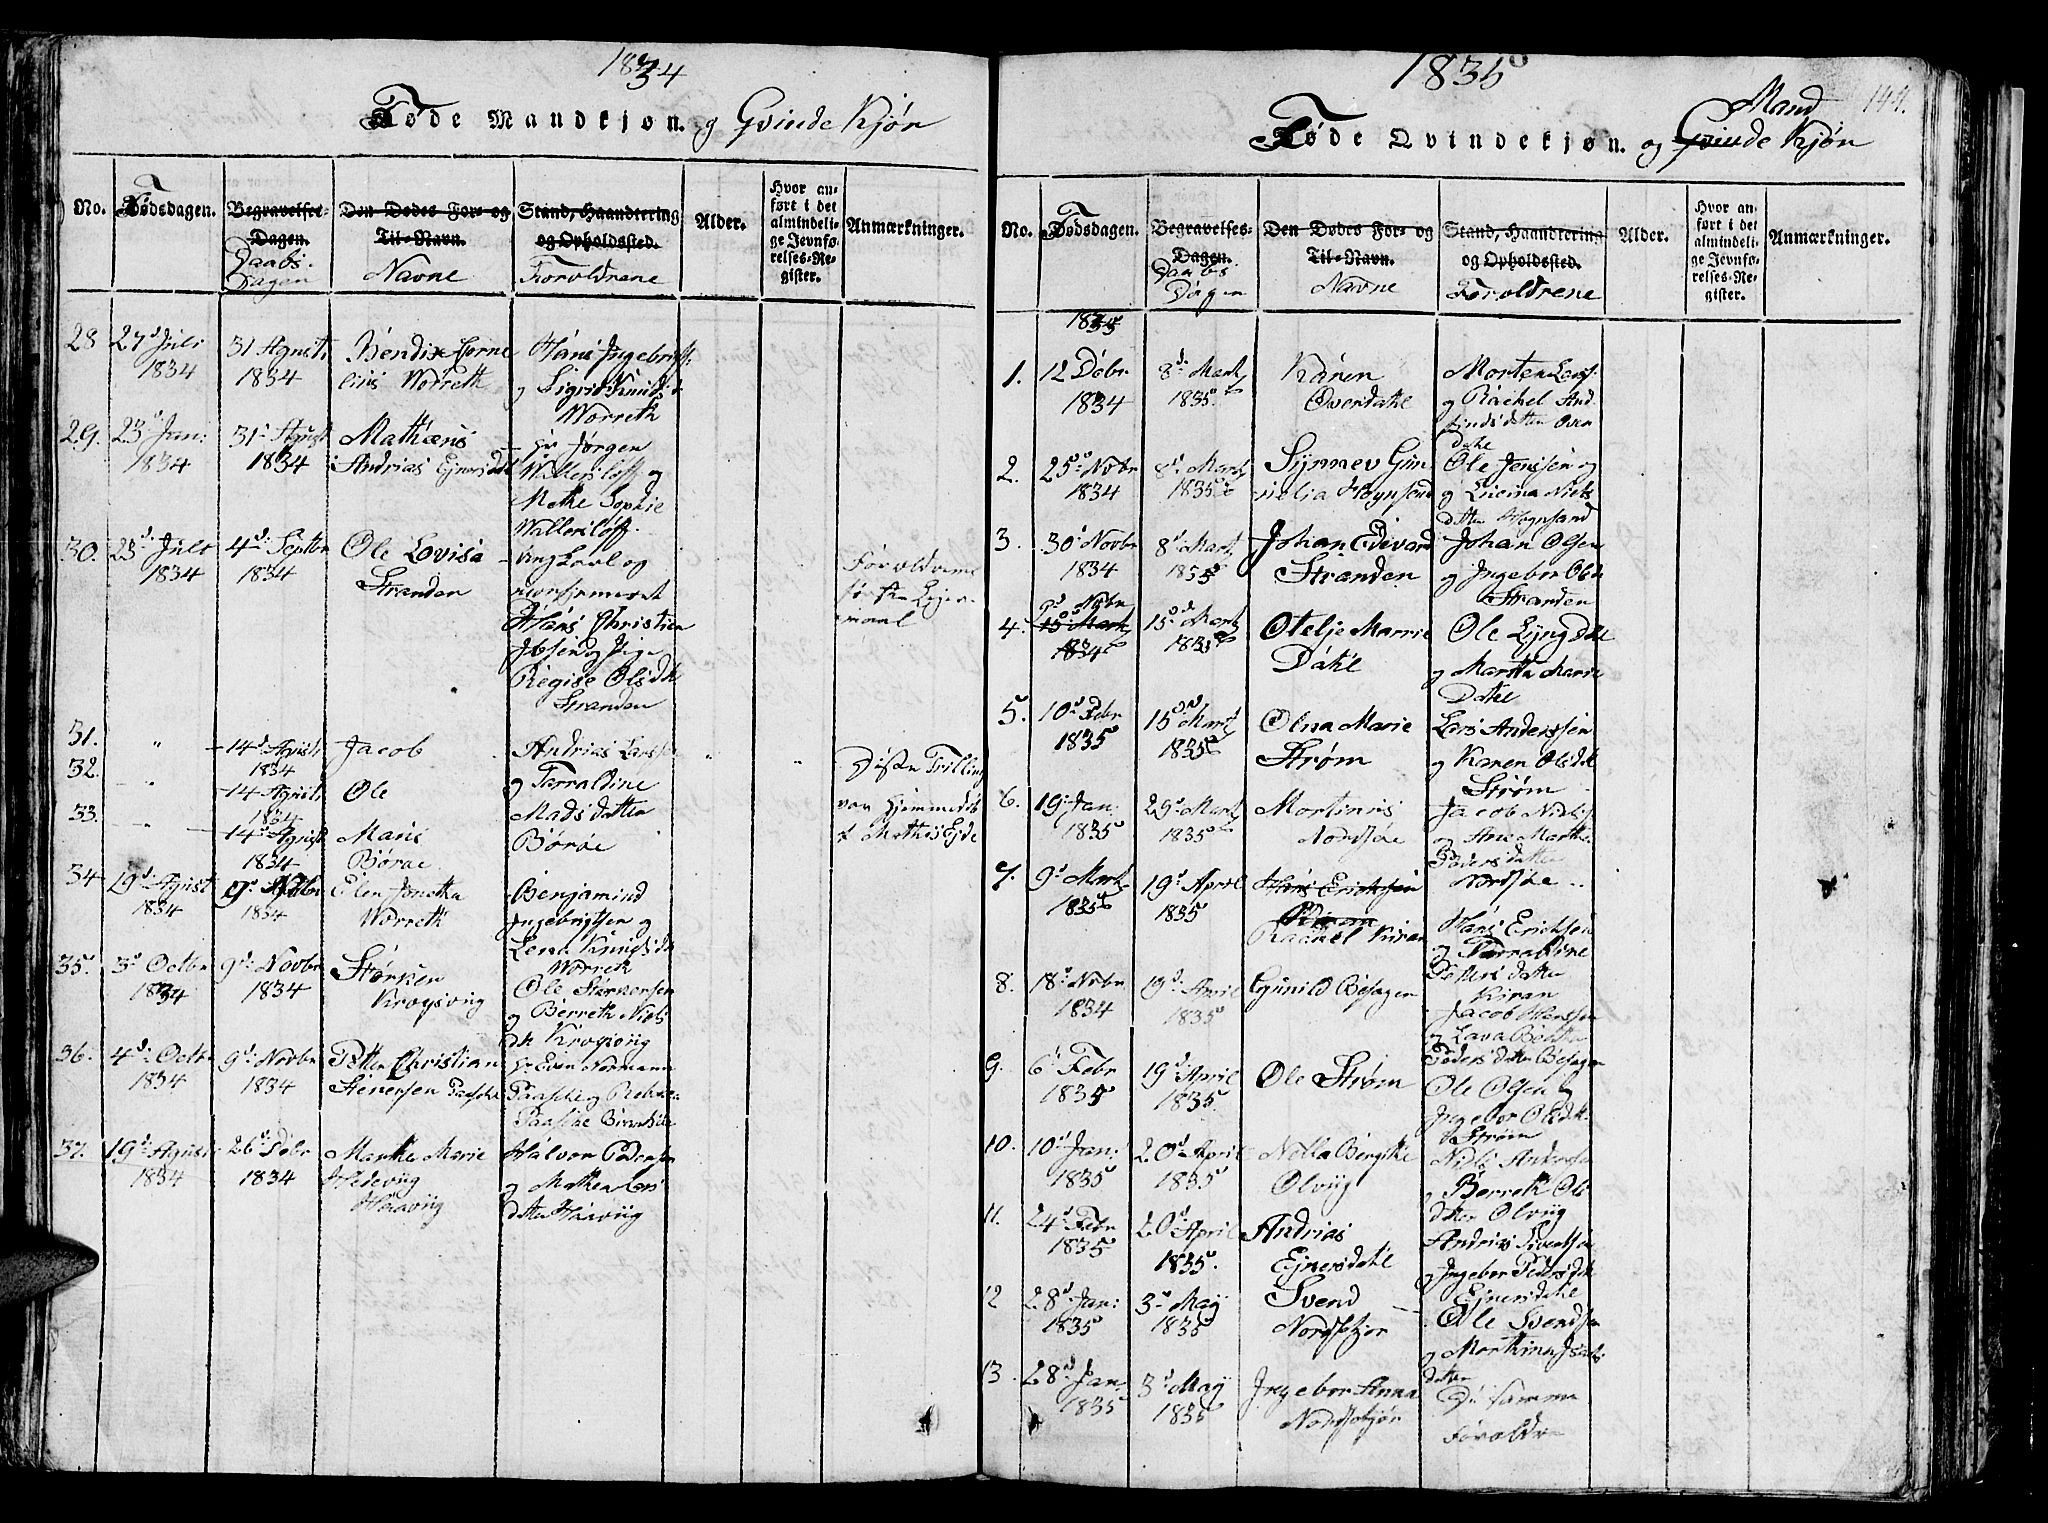 1834
Føde Mandkjøn. og Qvinde Kjøn
No.
Fødsdagen.
Begravelses-
Dagen.
Daabs-
Dagen
Den Dødes For- og
Til-Navn.
Navne
Stand, Haandtering
og Opholdssted.
Forældrene
Alder.
Hvor an-
ført i det
almindeli-
ge Jevnfø-
relses-Re-
gister.
Anmærkninger.
28 27d Juli
1834
31 Agusti
1834
Bendix Corne
lius Worreth
Hans Ingebrigts:
og Sigrid Knuds d
Worreth
29. 23d Jan:
1834
31d Agust
1834
Mathæus
Andrias Ejnersdal
Hr Jørgen
Wallersløff og
Mette Sophie
Wallersløff
30. 23d Juli
1834
4d Septbr
1834
Ole Lovisa
Stranden
Ungkarl og
nconfirmeret
Hans Christien
Ibsen og Pige
Regise Olsdtr
Stranden
Forældrene
første Lejer-
maal
31. " 14d Agusti
1834
Jacob
Andrias Larssen
og Tarraldine
Mads datter
Børøe
32. " 14 Agusti
1834
Ole
33. " 14d Agusti
1834
Maris
Børøe
Disse Trilling
var Hjemmedøbt
af Mathis Ejde
34 19d Agusti
1834
9d Novbr
1834
Elen Jonetta
Worreth
Benjamind
Ingebrigtsen og
Lena Knudsdtr
Worreth
35. 3d Octbr
1834
9d Novbr
1834
Størker
Krogsviig
Ole Størkersen
og Berreth Niels
dtr Krogsviig
36. 4d Octbr
1834
9d Novbr
1834
Petter Christian
Stenersen Paasche
Hr Even Normann
Paasche og Rebecca
Paasche
37. 19d Agusti
1834
26d Dbr
1834
Marthe Marie
Hedevig
Haaviig
Halvor Pedersen
og Mathea Lars
datter Haaviig
1835
144.
Føde Qvindekjøn. og Qvinde Mand Kjøn
No.
Fødsdagen.
Begravelses-
Dagen.
Daabs
Dagen
Den Dødes For- og
Til-Navn.
Navne
Stand, Haandtering
og Opholdssted.
Forældrene
Alder.
Hvor an-
ført i det
almindeli-
ge Jevnfø-
relses-Re-
gister.
Anmærkninger.
1835
1. 12 Dbr
1834
8d Marty
1835
Karen
Overdahl
Morten Lars:
og Rachel And
rinds datter Over
dahl
2. 25d Novbr
1834
8d Marty
1835
Synnev Gun
nelia Hognsand
Ole Jenssen og
og Lucina Niels
datter Hognsand
3. 30d Novbr
1834
8d Mart
1835
Johan Edevard
Stranden
Johan Olsen
og Ingebor Olsdtr
Stranden
4. 9d Novbr
15d Marty
1834
15d Marty
1835
Otelje Marrie
Dahl
Ole Lyngdahl
og Martha Marie
Dahl
5. 10d Febr
1835
15d Marty
1835
Olna Marie
Strøm
Lars Anderssen
og Karen Olsdtr
Strøm
6. 19d Jan:
1835
29d Marty
1835
Mortinus
Nordsøe
Jacob Niels:
og Ane Marthe
Peders datter
Nordsøe
7. 9d Marty
1835
19d April
1835
Hans Ericksen
Kiran
Rachel Kiran
Hans Ericksen
og Tarraldine
Petters datter
Kiran
8. 18d Novbr
1834
19d April
1835
Gunild Besagen
Jacob Hanssen
og Lava Beathe
Peders datter Besagen
9. 6d Febr
1835
19d April
1835
Ole Strøm
Ole Olsen og
Ingebor Olsdtr.
Strøm
10. 10d Jan:
1835
20d April
1835
Nella Bergithe
Olviig
Niels Andersen
og Berreth Ols
datter Olviig
11. 24d Febr
1835
20d April
1835.
Andrias
Ejnersdahl
Andrias Sivertsen
og Ingebor Pedersdtr
Ejnersdahl
12 28d Jan:
1835
3d May
1835
Svend
Nordsetjør
Ole Svendsen
og Marthina Isachs
datter
13. 28d Jan.
1835
3d May
1835
Ingebor Anna
Nordsetjør
De samme
Forældre